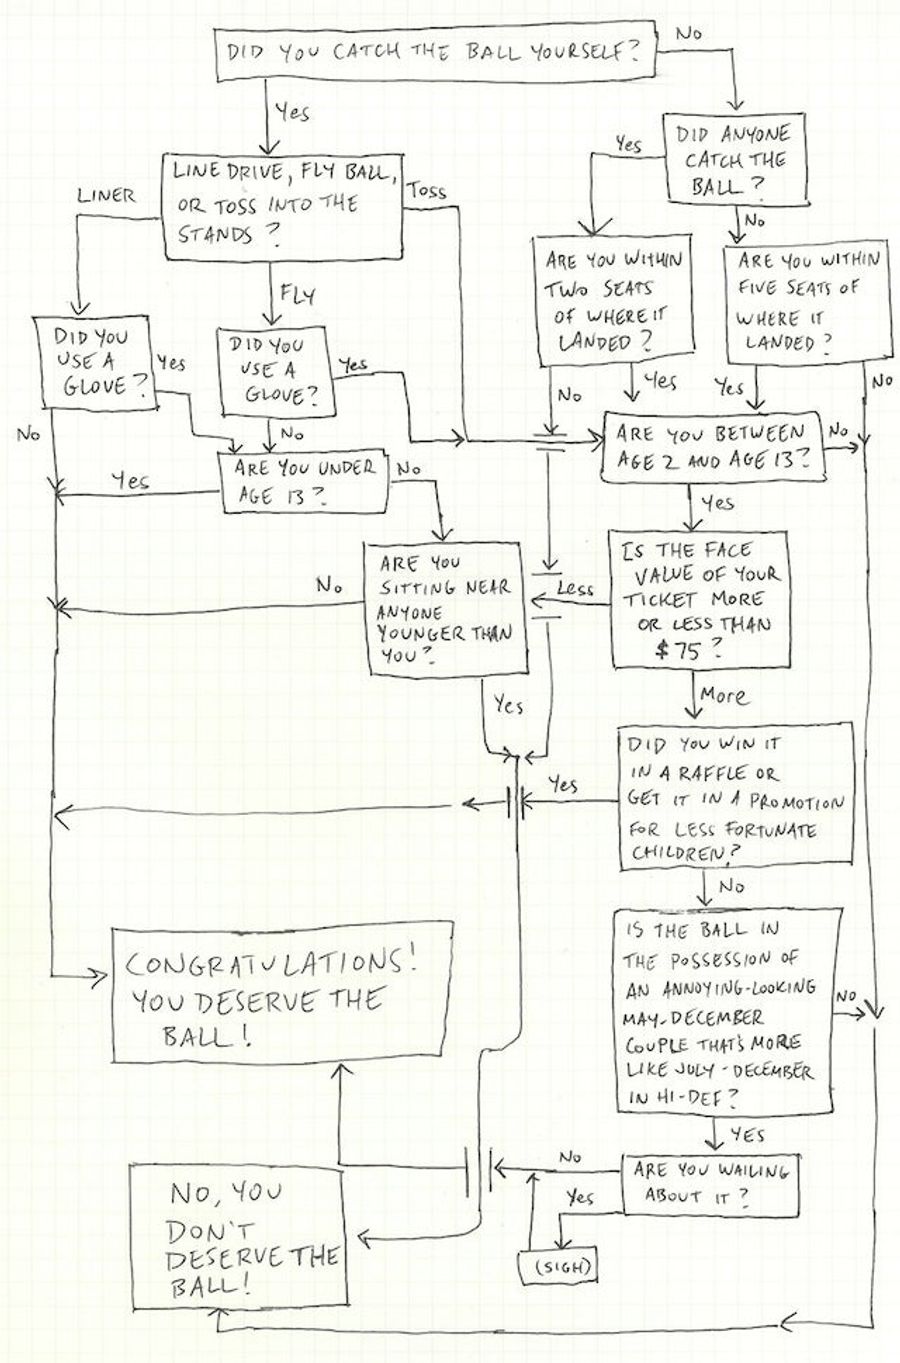 DID YOU CATCH THE BALL YOURSELF?
No
Yes
DID ANYONE
CATCH THE
BALL?
Yes
No
LINE DRIVE, FLY BALL,
OR TOSS INTO THE
STANDS?
LINER
Toss
FLY
ARE YOU WITHIN
TWO SEATS
OF WHERE IT
LANDED?
ARE YOU WITHIN
FIVE SEATS OF
WHERE IT
LANDED?
DID YOU
USE A
GLOVE?
Yes
No
DID YOU
USE A
GLOVE?
Yes
No
No
Yes
Yes
No
ARE YOU BETWEEN
AGE 2 AND AGE 13?
No
Yes
ARE YOU UNDER
AGE 13?
Yes
No
ARE YOU
SITTING NEAR
ANYONE
YOUNGER THAN
YOU?
No
Yes
IS THE FACE
VALUE OF YOUR
TICKET MORE
OR LESS THAN
$75?
Less
More
DID YOU WIN IT
IN A RAFFLE OR
GET IT IN A PROMOTION
FOR LESS FORTUNATE
CHILDREN?
Yes
No
IS THE BALL IN
THE POSSESSION OF
AN ANNOYING-LOOKING
MAY-DECEMBER
COUPLE THAT'S MORE
LIKE JULY-DECEMBER
IN HI-DEF?
NO
YES
CONGRATULATIONS!
YOU DESERVE THE
BALL!
ARE YOU WAILING
ABOUT IT?
No
Yes
(SIGH)
NO, YOU
DON'T
DESERVE THE
BALL!